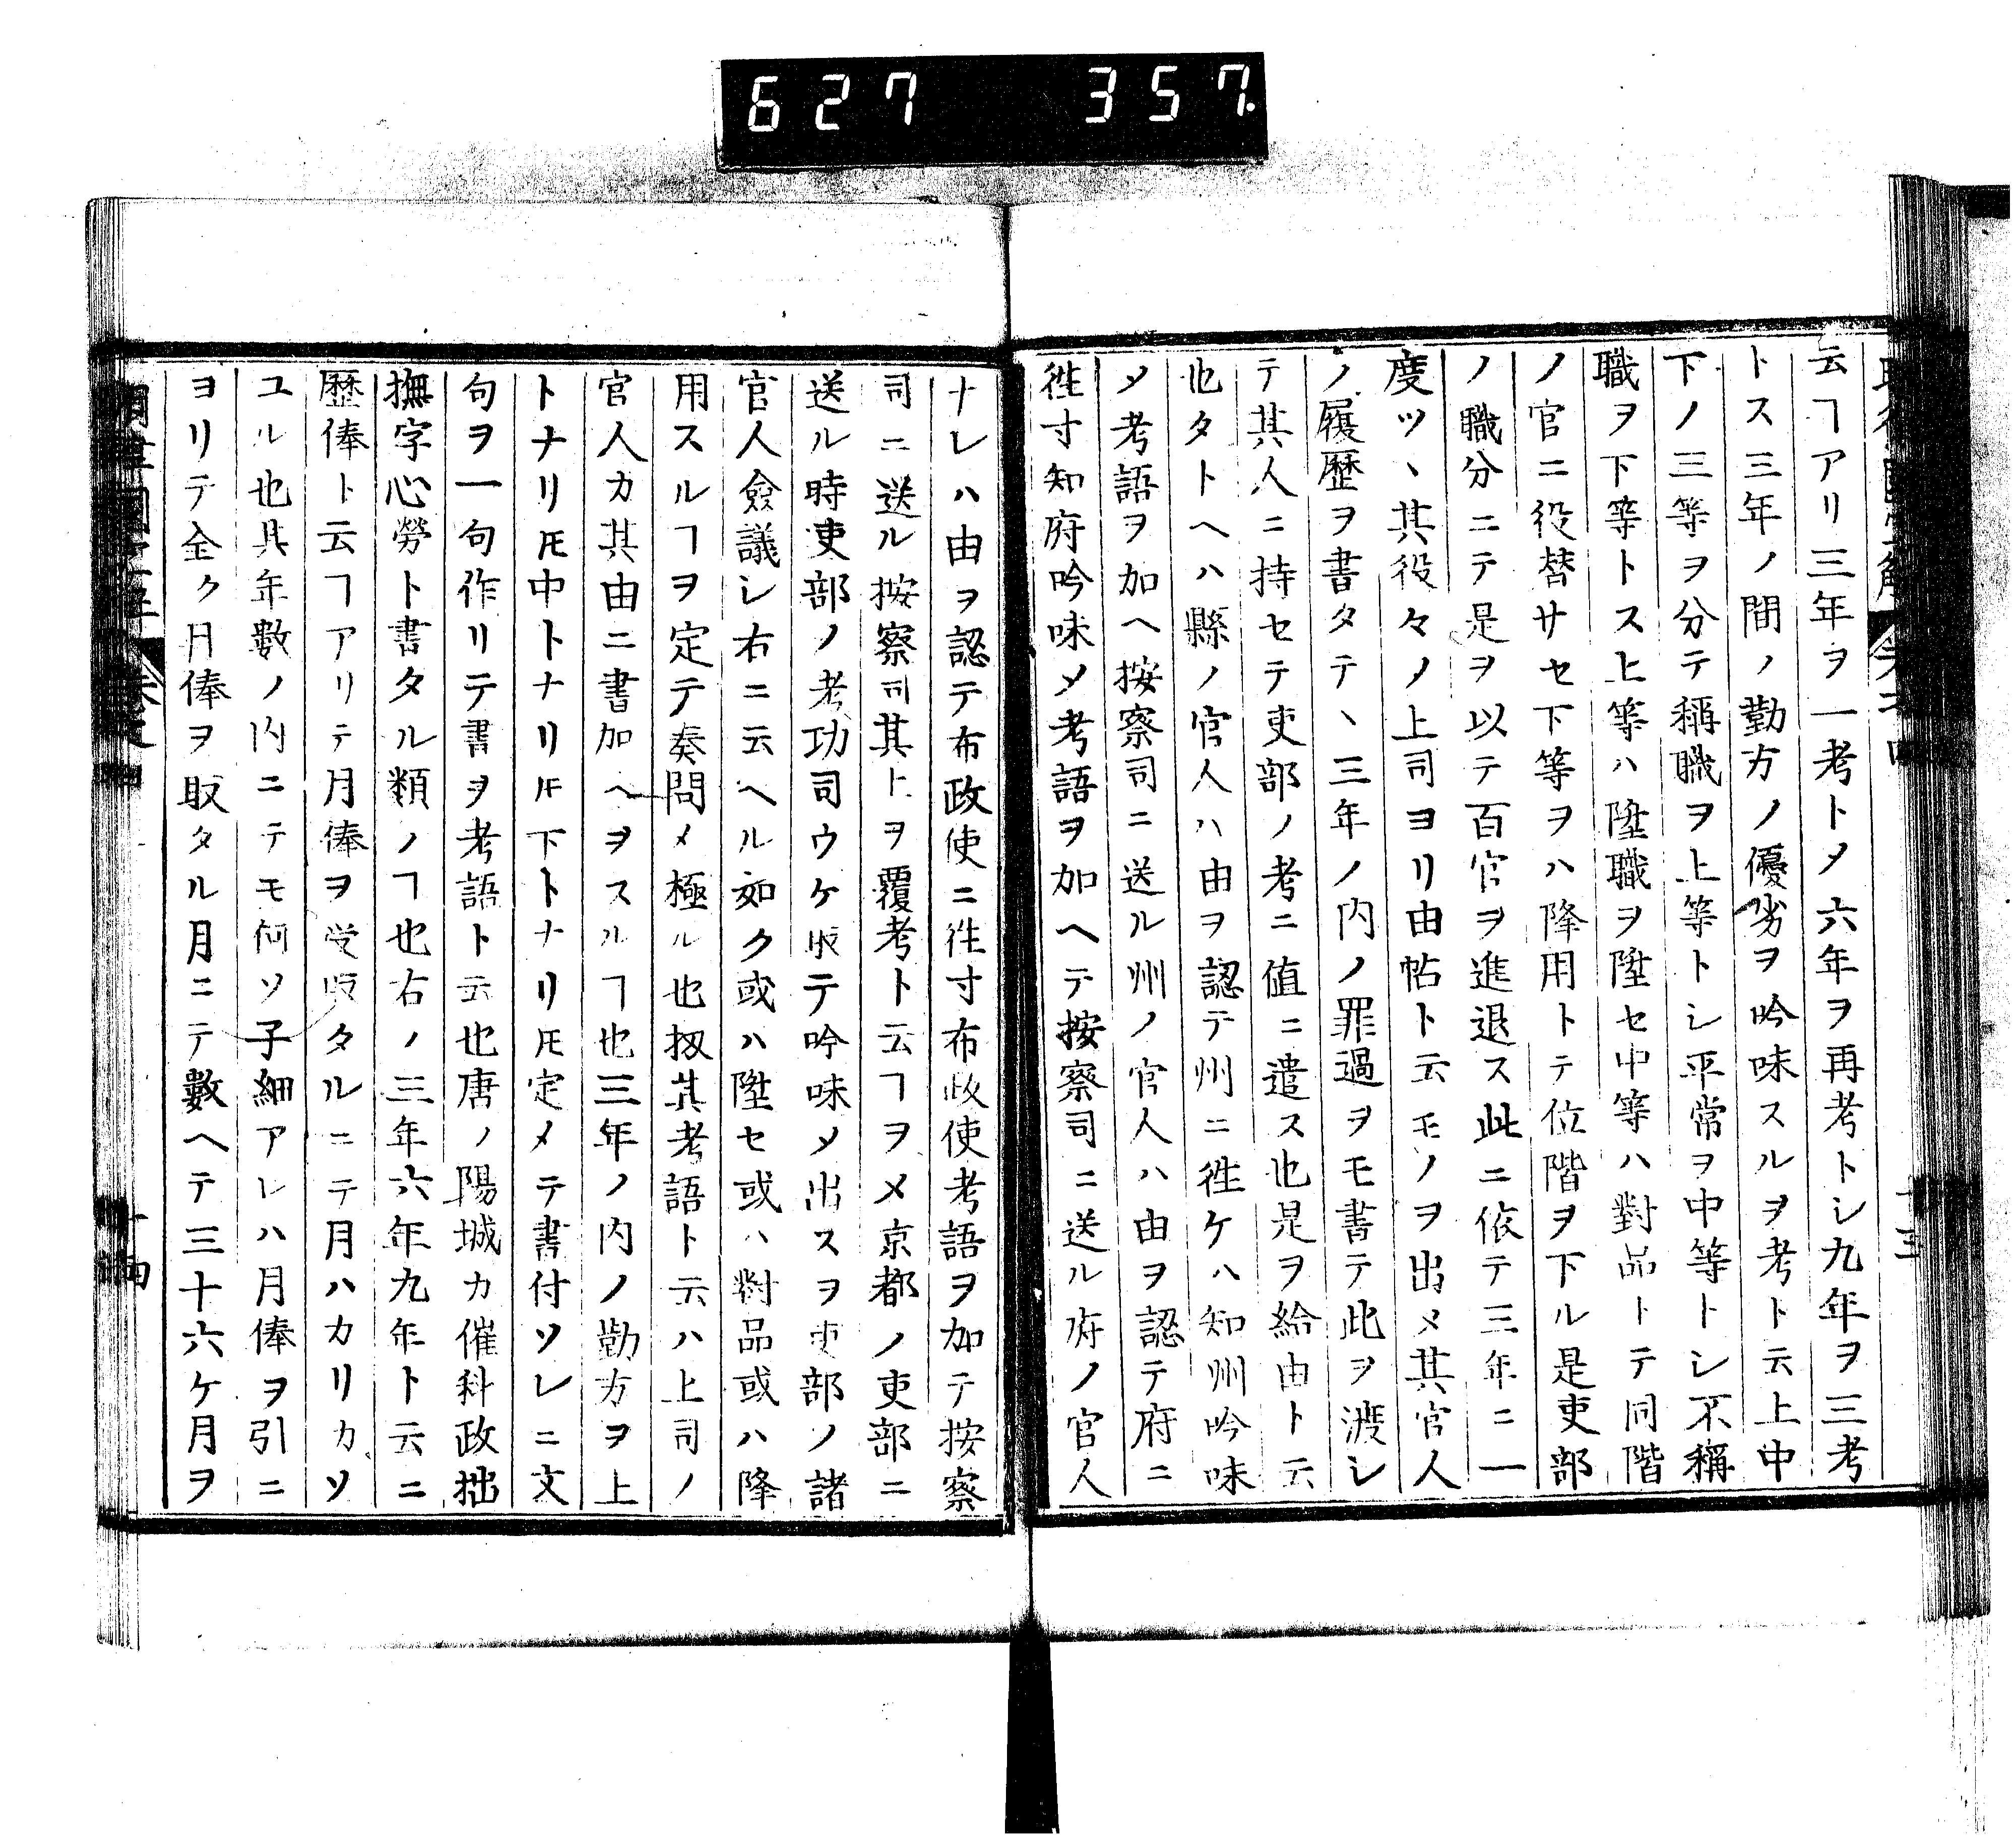 627 357.
云ヿアリ三年ヲ一考トメ六年ヲ再考トシ九年ヲ三考
トス三年ノ間ノ勤方ノ優劣ヲ吟味スルヲ考ト云上中
下ノ三等ヲ分テ稱職ヲ上等トシ平常ヲ中等トシ不稱
職ヲ下等トス上等ハ陞職ヲ陞セ中等ハ對品トテ同階
ノ官ニ役替サセ下等ヲハ降用トテ位階ヲ下ル是吏部
ノ職分ニテ是ヲ以テ百官ヲ進退ス此ニ依テ三年ニ一
度ツヽ其役々ノ上司ヨリ由帖ト云モノヲ出メ其官人
ノ履歷ヲ書タテヽ三年ノ内ノ罪過ヲモ書テ此ヲ渡シ
テ其人ニ持セテ吏部ノ考ニ値ニ遣ス也是ヲ給由ト云
也タトヘハ縣ノ官人ハ由ヲ認テ州ニ徃ケハ知州吟味
メ考語ヲ加ヘ按察司ニ送ル州ノ官人ハ由ヲ認テ府ニ
徃寸知府吟味メ考語ヲ加ヘテ按察司ニ送ル府ノ官人
ナレハ由ヲ認テ布政使ニ徃寸布政使考語ヲ加テ按察
司ニ送ル按察司其上ヲ覆考ト云ヿヲメ京都ノ吏部ニ
送ル時吏部ノ考功司ウケ取テ吟味メ出スヲ吏部ノ諸
官人僉議シ右ニ云ヘル如ク或ハ陞セ或ハ對品或ハ降
用スルヿヲ定テ奏問メ極ル也扨其考語ト云ハ上司ノ
官人カ其由ニ書加ヘヲスルヿ也三年ノ内ノ勤方ヲ上
トナリ𪜈中トナリ𪜈下トナリ𪜈定メテ書付ソレニ文
句ヲ一句作リテ書ヲ考語ト云也唐ノ陽城カ催科政拙
撫字心勞ト書タル類ノヿ也右ノ三年六年九年ト云ニ
歷俸ト云ヿアリテ月俸ヲ受取タルニテ月ハカリカソ
ユル也其年數ノ内ニテモ何ソ子細アレハ月俸ヲ引ニ
ヨリテ全ク月俸ヲ取タル月ニテ數ヘテ三十六ケ月ヲ